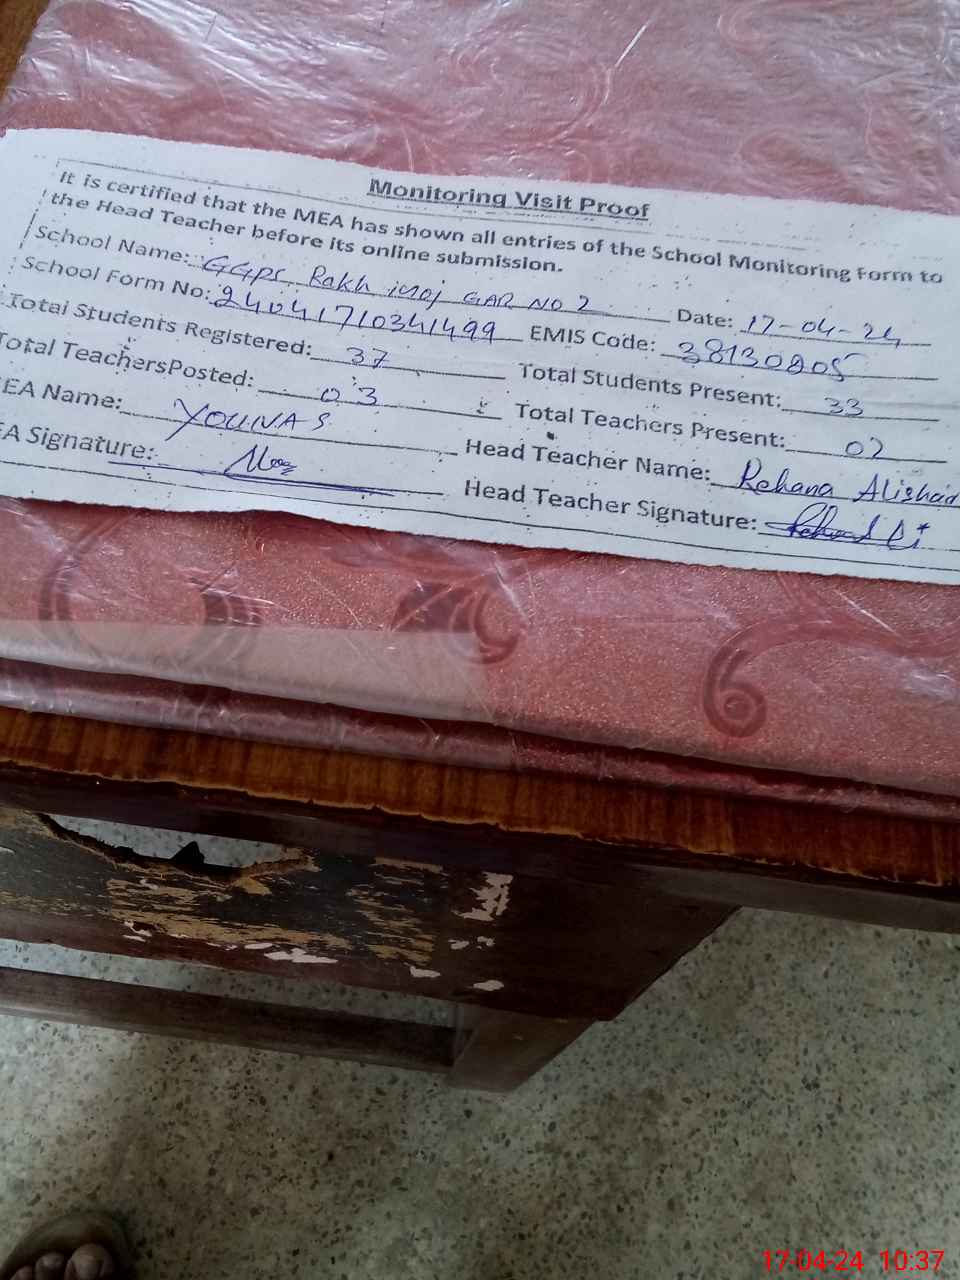 Monitoring Visit Proof
It is certified that the MEA has shown all entries of the School Monitoring Form to
the Head Teacher before its online submission.
School Name: GGPS Rakh GAR NO 2 Date: 17-04-24
School Form No: 24041710341499 EMIS Code: 38130205
Total Students Registered: 37 Total Students Present: 33
Total TeachersPosted: 03 Total Teachers Present: 02
MEA Name: YOUNAS Head Teacher Name: Rehana
EA Signature: Head Teacher Signature:
17-04-24 10:37